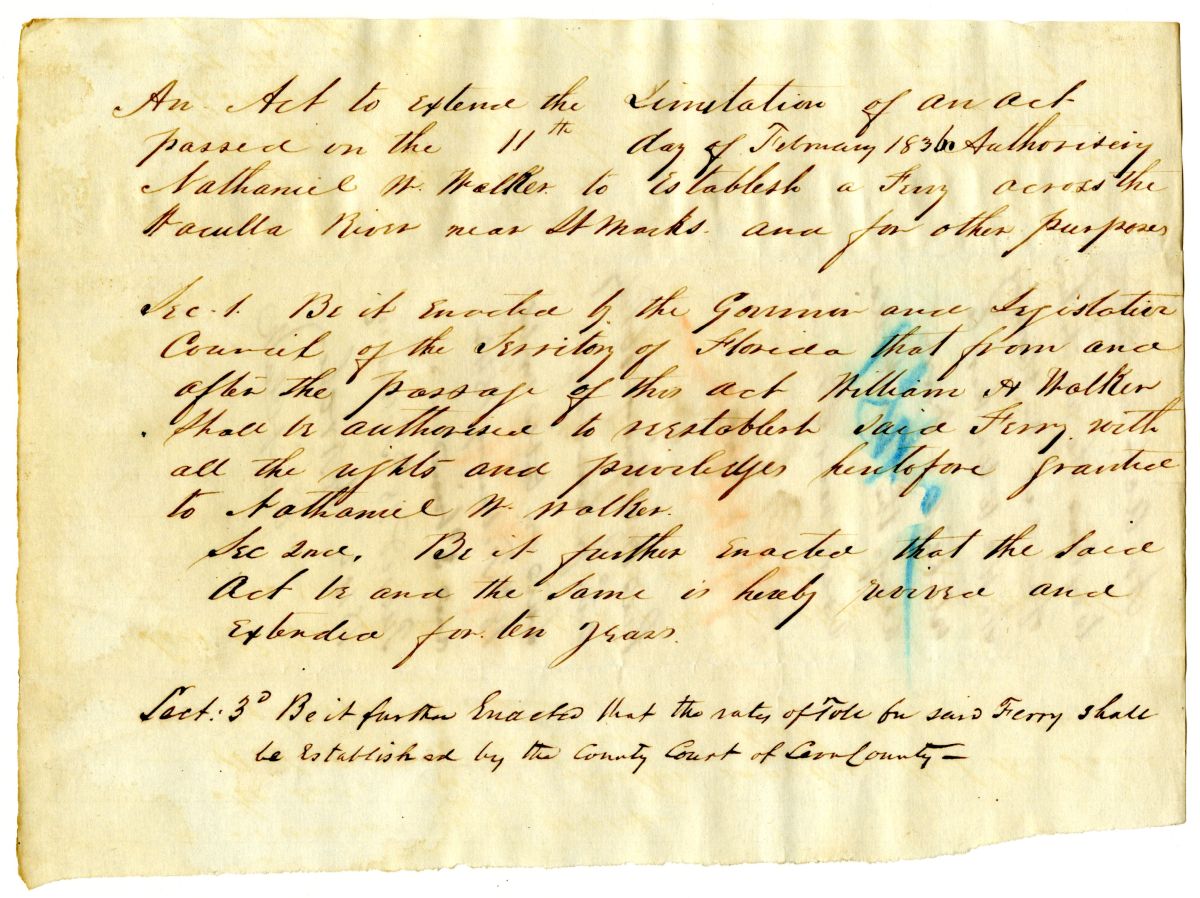 An Act to extend the Limitation of an act
passed on the 11th day of February 1836 Authorising
Nathaniel W. Walker to Establish a Ferry across the
Waculla River near St Marks. and for other purposes
Sec. 1. Be it Enacted by the Governor and Legislative
Council of the Territory of Florida that from and
after the passage of this act William H Walker
Shall be authorised to reestablish Said Ferry with
all the rights and priviledges heretofore granted
to Nathaniel W. Walker.
Sec 2nd. Be it further Enacted that the Said
Act be and the Same is hereby revived and
Extended for ten years.
Sect: 3d Be it further Enacted that the rates of Toll for said Ferry shall
be Established by the County Court of Leon County—